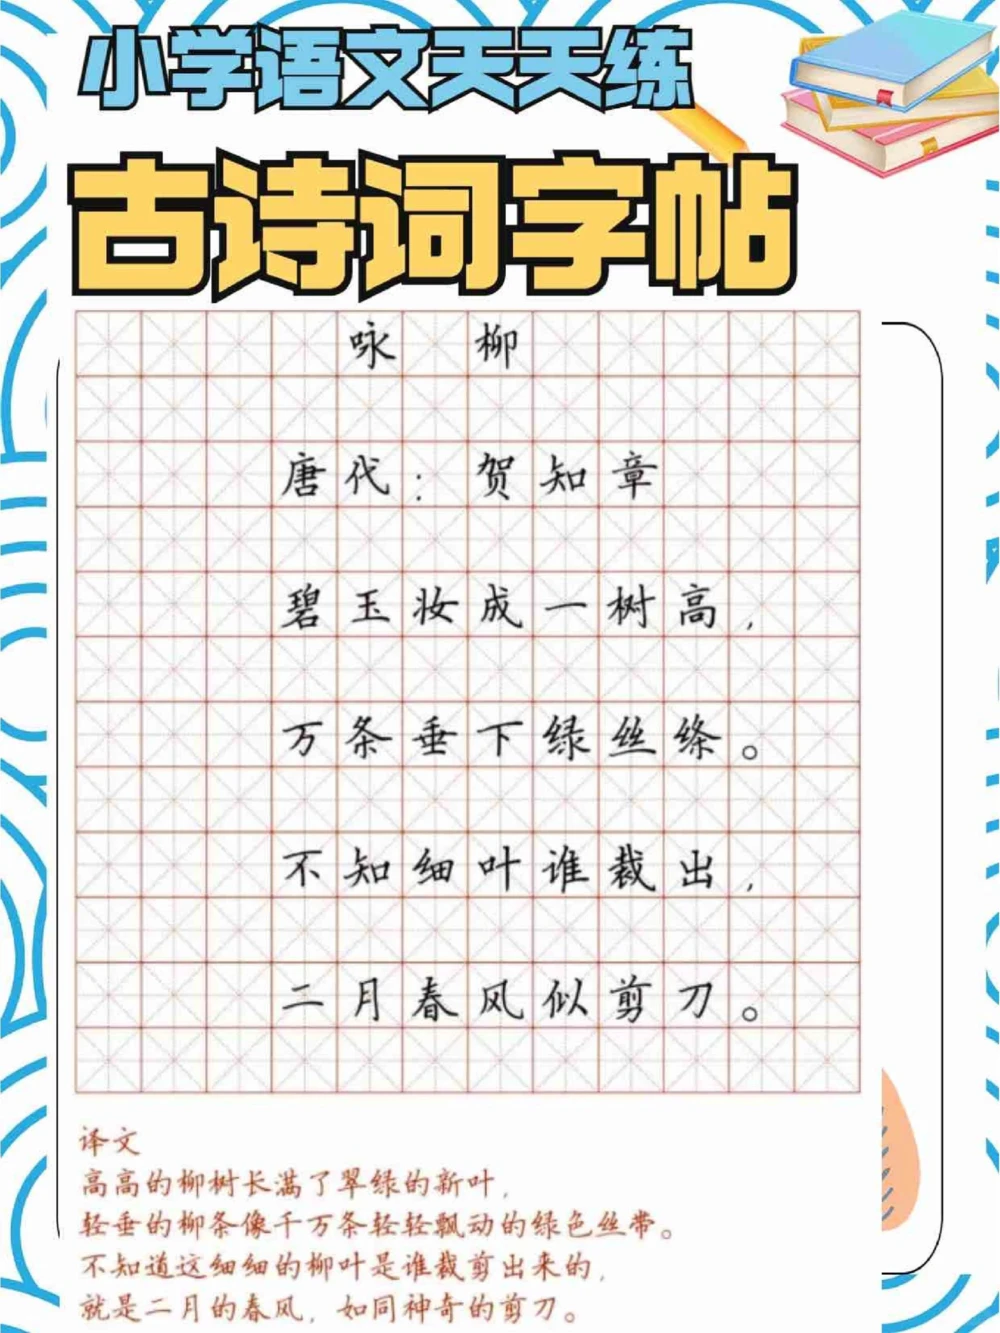 小学语文天天练
古诗词字帖
咏 柳
唐代：贺知章
碧玉妆成一树高，
万条垂下绿丝绦。
不知细叶谁裁出，
二月春风似剪刀。
译文
高高的柳树长满了翠绿的新叶，
轻垂的柳条像千万条轻轻飘动的绿色丝带。
不知道这细细的柳叶是谁裁剪出来的，
就是二月的春风，如同神奇的剪刀。